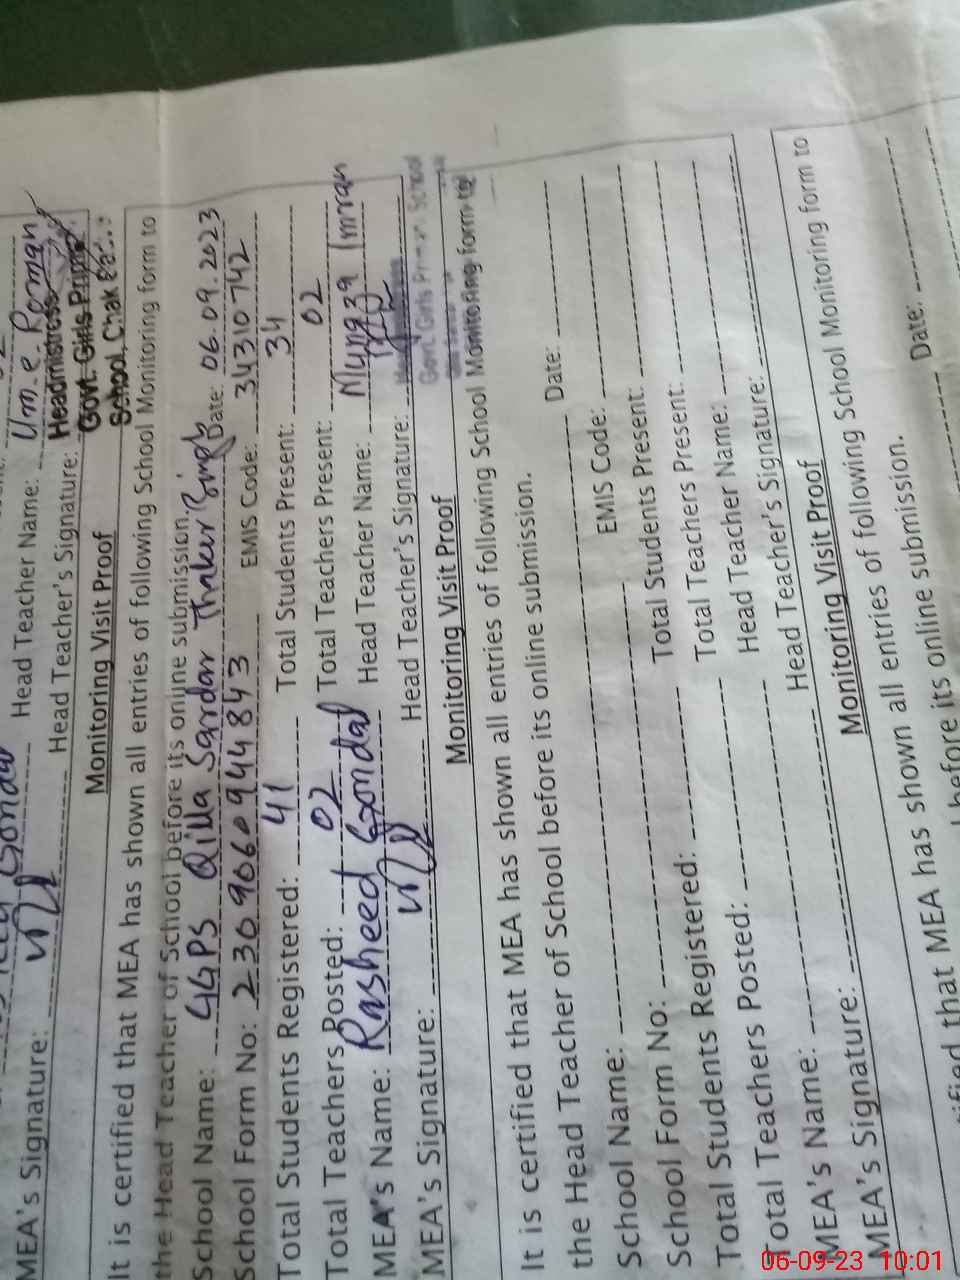 Head Teacher Name: Um-e-Roman
MEA's Signature: Head Teacher's Signature:
Headmistress
Govt. Girls
School, Chak
Monitoring Visit Proof
It is certified that MEA has shown all entries of following School Monitoring form to
the Head Teacher of School before its online submission.
School Name: GGPS Qilla Sardar Thaker Singh Date: 06.09.2023
School Form No: 23090609 44843 EMIS Code: 34310742
Total Students Registered: 41 Total Students Present: 34
Total Teachers Posted: 02 Total Teachers Present: 02
MEA's Name: Rasheed Gondal Head Teacher Name: Imran
MEA's Signature: Head Teacher's Signature:
Govt. Girls School
Monitoring Visit Proof
It is certified that MEA has shown all entries of following School Monitoring form to
the Head Teacher of School before its online submission.
School Name: Date:
School Form No: EMIS Code:
Total Students Registered: Total Students Present:
Total Teachers Posted: Total Teachers Present:
MEA's Name: Head Teacher Name:
MEA's Signature: Head Teacher's Signature:
Monitoring Visit Proof
that MEA has shown all entries of following School Monitoring form to
before its online submission.
Date:
06-09-23 10:01